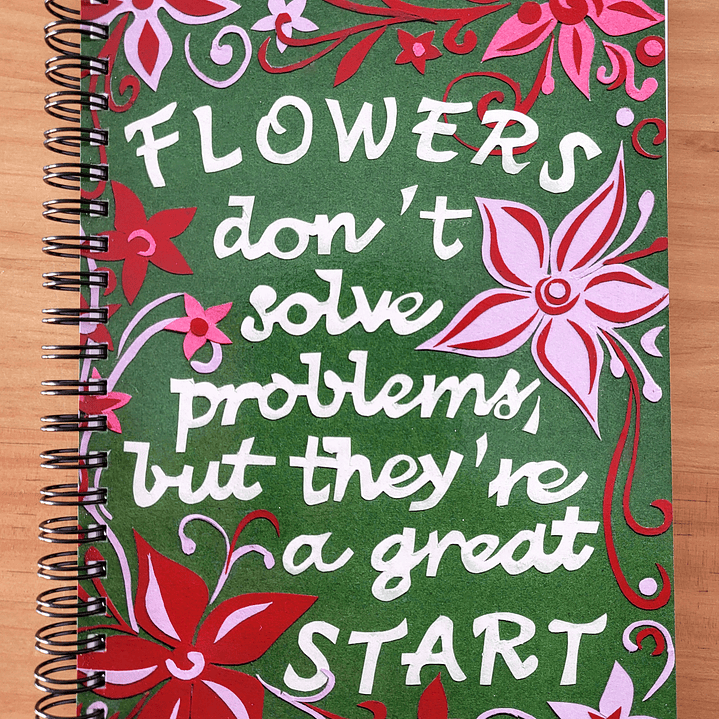 FLOWERS
don't
solve
problems,
but they're
a great
START